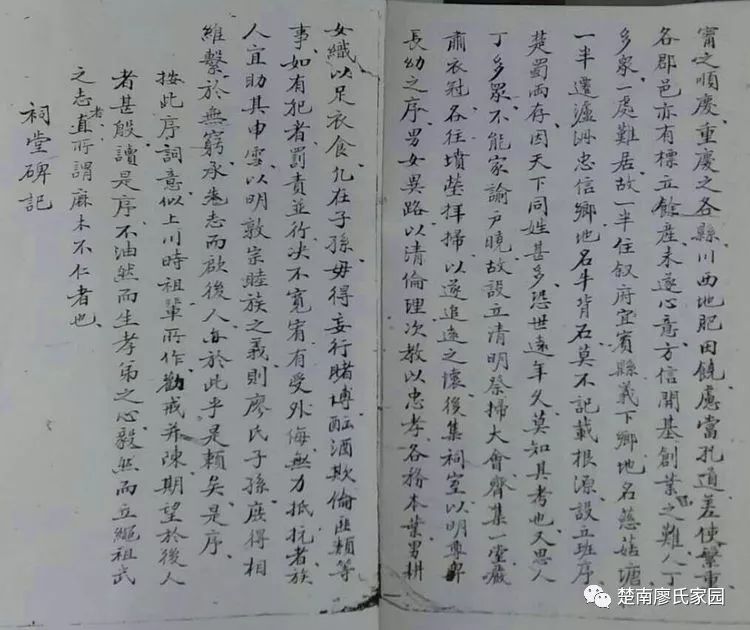 甯之順慶重慶之各縣川西地肥田饒慮當孔道差使繁重
各郡邑亦有標立餘產未遂心意方信開基創業之難人丁
多衆一處難居故一半住叙府宜賓縣義下鄉地名慈菇塘
一半遷瀘州忠信鄉地名牛背石莫不記載根源設立班序
楚蜀兩存因天下同姓甚多恐世遠年久莫知其考也又思人
丁多眾不能家諭戶曉故設立清明祭掃大會齊集一堂嚴
肅衣冠各往墳塋拜掃以遂追遠之懷後集祠堂以明尊卑
長幼之序男女異路以清倫理次教以忠孝各務本業男耕
女織以足衣食凡在子孫毋得妄行賭博酗酒欺倫匪類等
事如有犯者罰責並行决不寬宥有受外侮無力抵抗者族
人宜助其申雪以明敦宗睦族之義則廖氏子孫庶得相
維繫於無窮承先志而啟後人每於此乎是賴矣是序
按此序詞意似上川時祖輩所作勸戒并陳期望於後人
者甚殷讀是序不油然而生孝弟之心毅然而立繩祖武
之志者直所謂麻木不仁者也
祠堂碑記
楚南廖氏家园